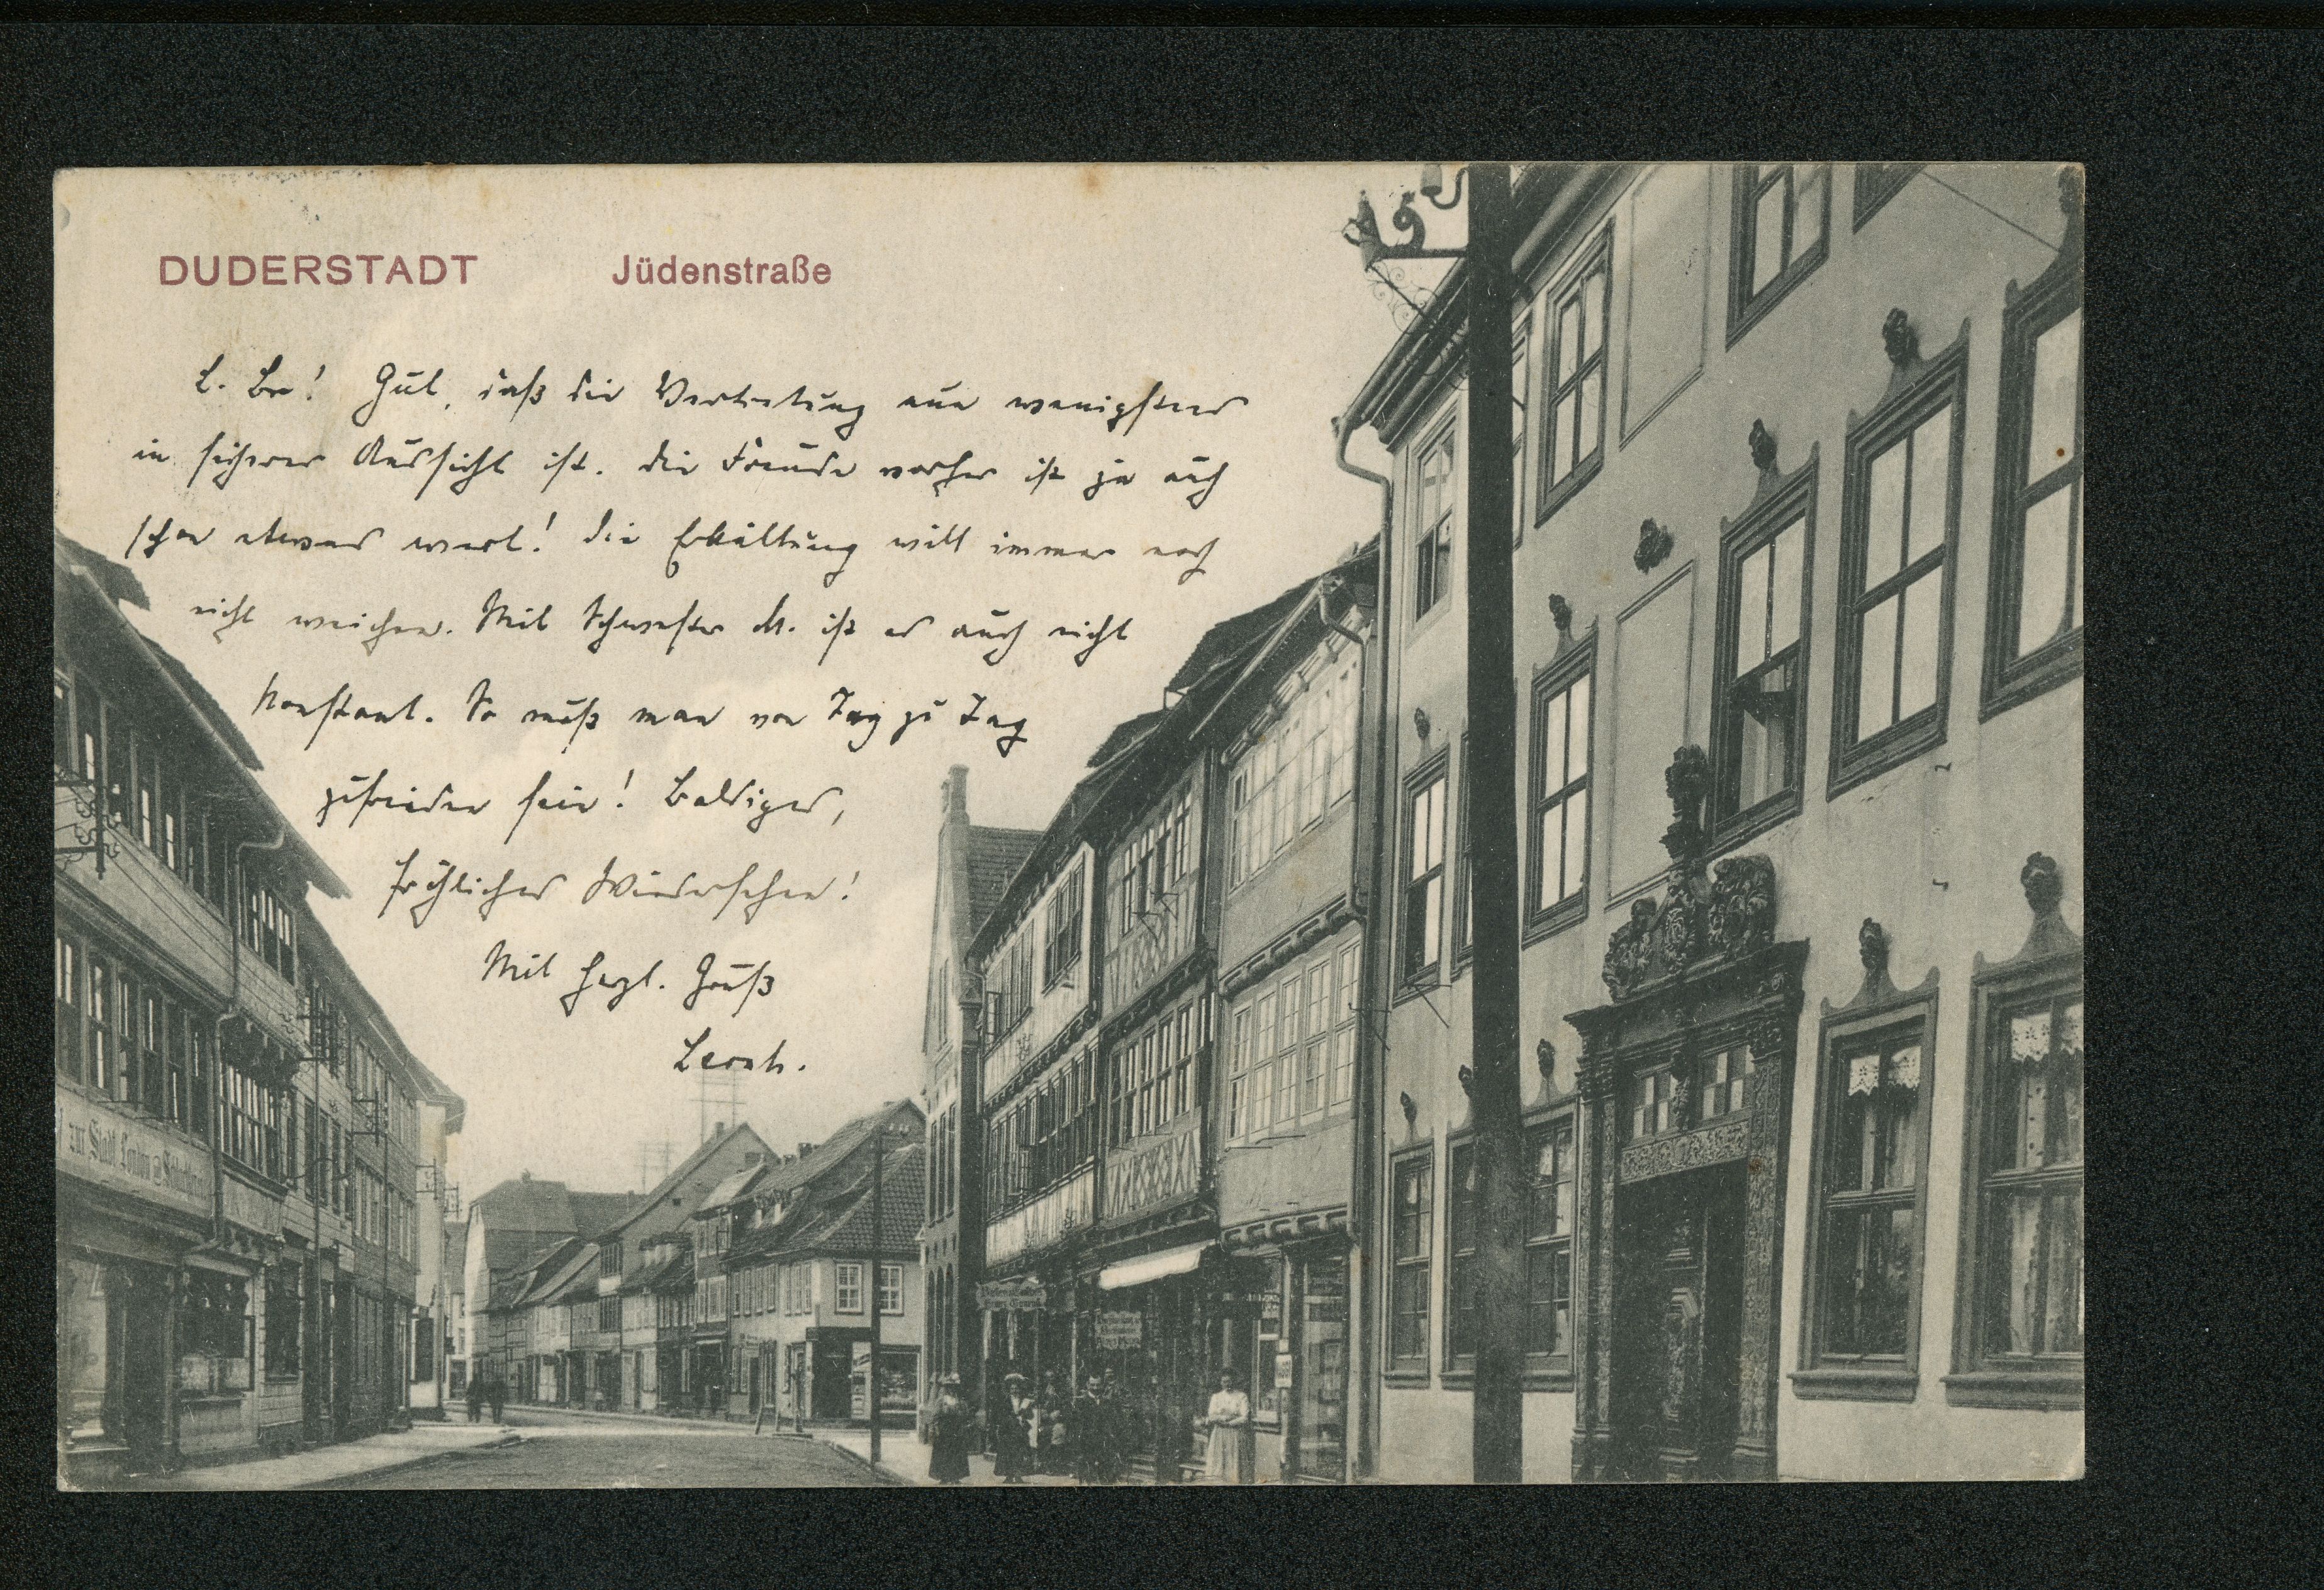 DUDERSTADT Jüdenstraße
L. Br! Gut, daß die Vertretung nun wenigstens
in sicherer Aussicht ist. Die Freude vorher ist ja auch
schon etwas wert! Die Erkältung will immer noch
nicht weichen. Mit Schwester M. ist es auch nicht
konstant. So muß man von Tag zu Tag
zufrieden sein! Baldiges,
fröhliches Wiedersehen!
Mit herzl. Gruß
zur Stadt London